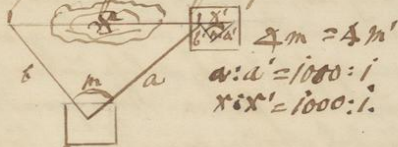 x
x'
b' m' a'
∡m = ∡m'
b
m
a
a:a' = 1000:1
x:x' = 1000:1.